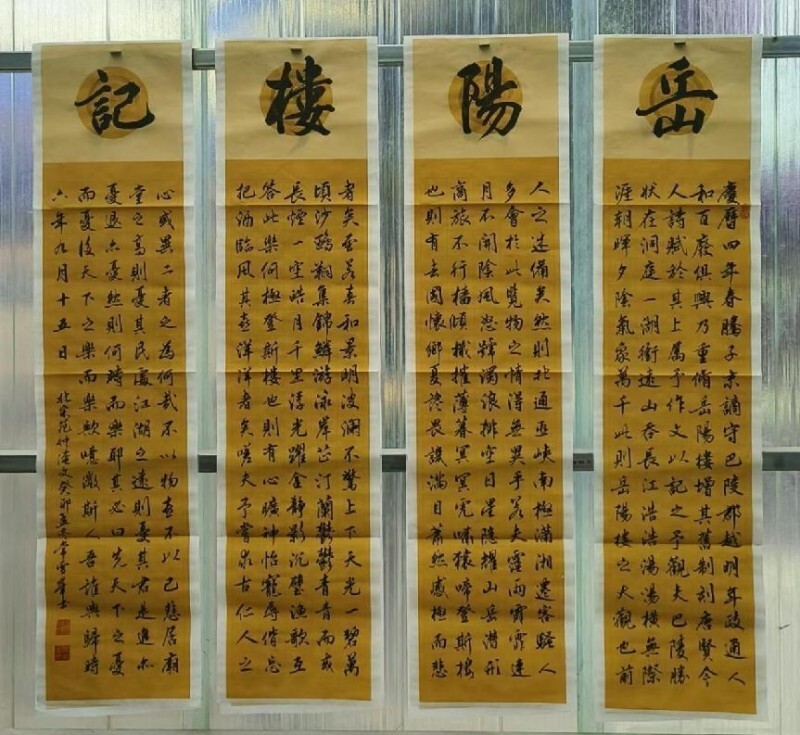 岳
慶曆四年春滕子京謫守巴陵郡越明年政通人
和百廢俱興乃重脩岳陽樓增其舊制刻唐賢今
人詩賦於其上属予作文以記之予觀夫巴陵勝
狀在洞庭一湖銜遠山吞長江浩浩湯湯橫無際
涯朝暉夕陰氣象萬千此則岳陽樓之大觀也前
陽
人之述備矣然則北通巫峽南極瀟湘遷客騷人
多會於此覽物之情得無異乎若夫霪雨霏霏連
月不開陰風怒號濁浪排空日星隱耀山岳潛形
商旅不行檣傾檝摧薄暮冥冥虎嘯猿啼登斯樓
也則有去國懷鄉憂讒畏譏滿目蕭然感極而悲
樓
者矣至若春和景明波瀾不驚上下天光一碧萬
頃沙鷗翔集錦鱗游泳岸芷汀蘭鬱鬱青青而或
長煙一空皓月千里浮光躍金靜影沉璧漁歌互
答此樂何極登斯樓也則有心曠神怡寵辱偕忘
把酒臨風其喜洋洋者矣嗟夫予嘗求古仁人之
記
心或異二者之為何哉不以物喜不以己悲居廟
堂之高則憂其民處江湖之遠則憂其君是進亦
憂退亦憂然則何時而樂耶其必曰先天下之憂
而憂後天下之樂而樂歟噫微斯人吾誰與歸時
六年九月十五日
北宋范仲淹文癸卯孟冬